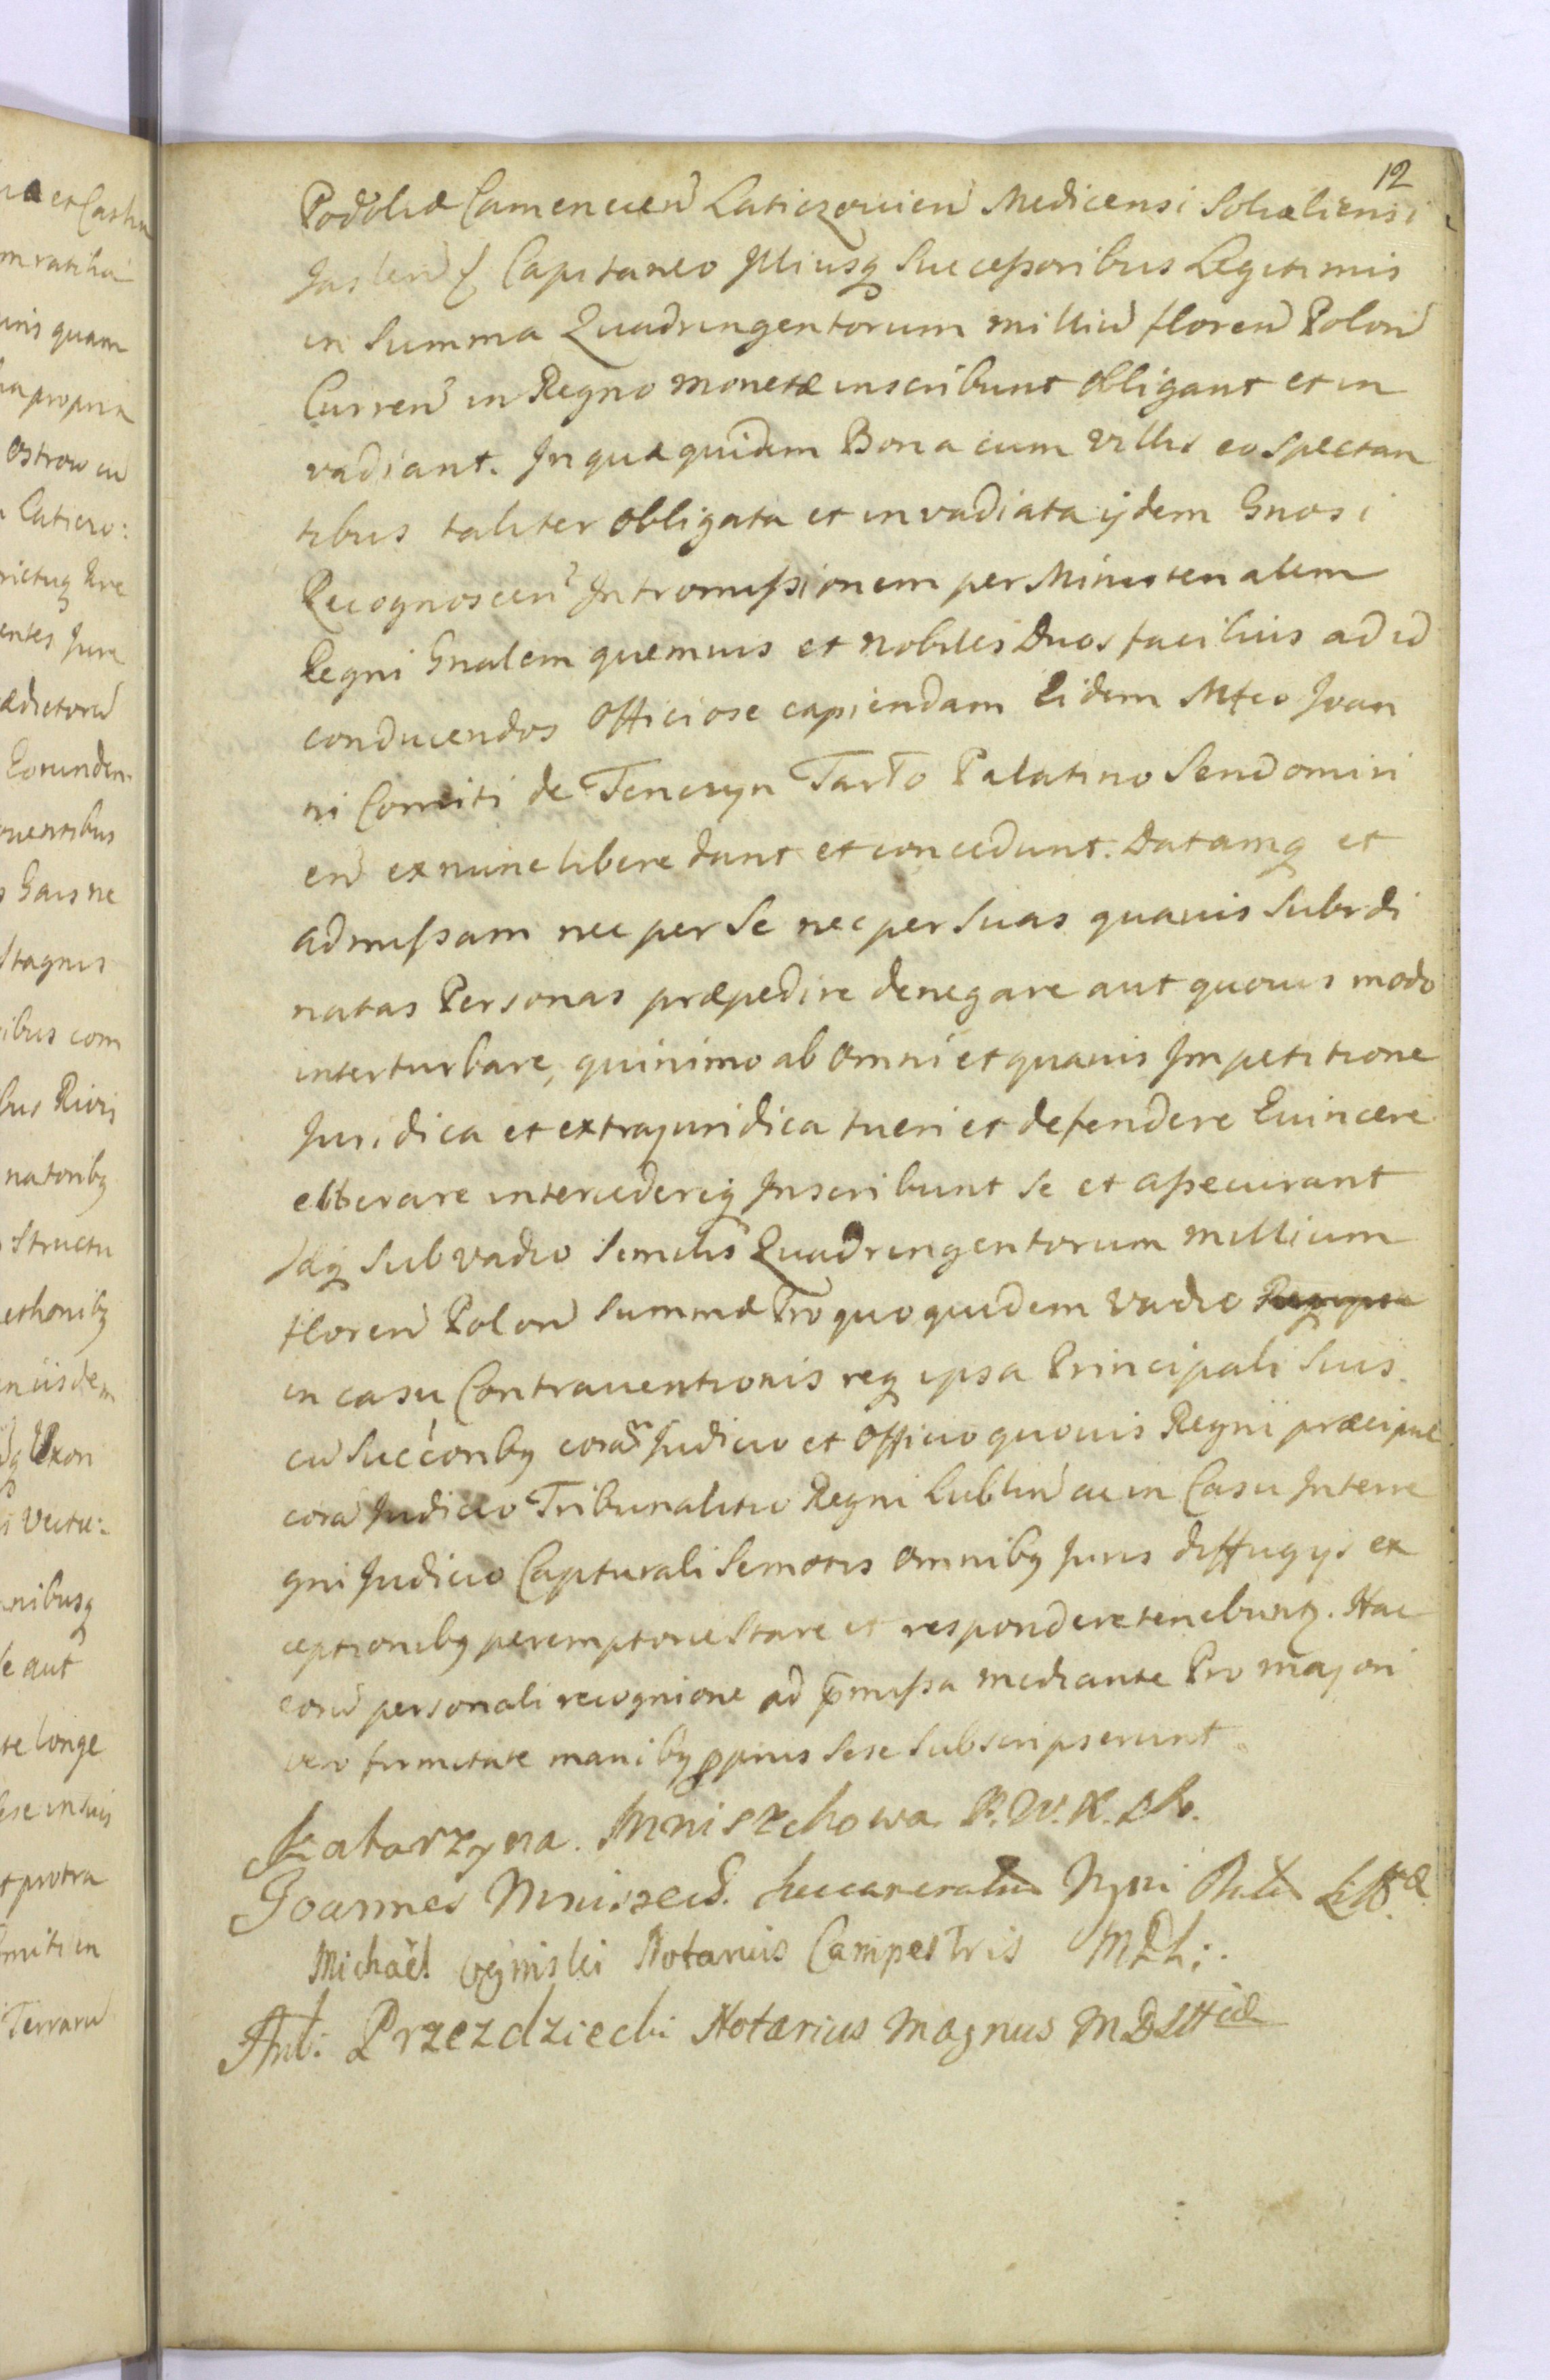 12
Podoliæ Camenecen Laticzovien Medicensi Sokaliensi
Jaslen Capitaneo Illiusq Successoribus Legitimis
in Summa Quadringentorum milliu floren Polon
Curren in Regno monetæ inscribunt obligant et in
vadiant. In quæ quidem Bona cum villis eo spectan
tibus taliter obligata et invadiata ijdem Gnosi
Recognoscen Intromissionem per Ministerialem
Regni Gnalem quemvis et nobiles Duos facilius ad id
conducendos officiose capiendam Eidem Mfco Joan
ni Comiti de Tenczyn Tarło Palatino Sendomiri
en ex nunc libere dant et concedunt. Datamq et
admissam nec per se nec per suas quasvis Subrdi
natas Personas præpedire denegare aut quovis modo
interturbare, quinimo ab omni et quavis Impetitione
Juridica et extrajuridica tueri et defendere Evincere
elibberare intercedereq Inscribunt se et assecurant
Idq sub vadio similis Quadringentorum millium
floren Polon summæ Pro quo quidem vadio
in casu Contraventionis req ipsa Principali suis
cu succonbq coram Judicio et Officio quovis Regni præcipue
cora Judicio Tribunalitio Regni Lublin ac in Casu Interre
gni Judicio Capturali Semotis omnibq Juris diffugijs ex
ceptionibq peremptorie stare et respondere tenebuntq. Hac
eoru personali recognione ad pmissa mediante Pro majori
vero firmitate manibq pprijs sese subscripserunt
Katarzyna Mniszchowa P. W. K. L.
Joannes Mniszech Succamerarius Mgni Duc. Litt.æ
Michaël Oginski Notarius Campestris MDL:.
Ant: Przezdziecki Notarius Magnus MDLittæ
a et Castre
m ratiha
uris quam
ha propria
Ostrow in
Laticzo:
rictuq
entes Jure
ædictoru
Eorunden
ventibus
Gais ne
stagnis
ibus com
bus Rivis
natoribq
structu
ethonibq
in iisdem
Uxon
Vectu:
nibusq
e aut
te longe
ese in suis
t protra
mit in
Terraru